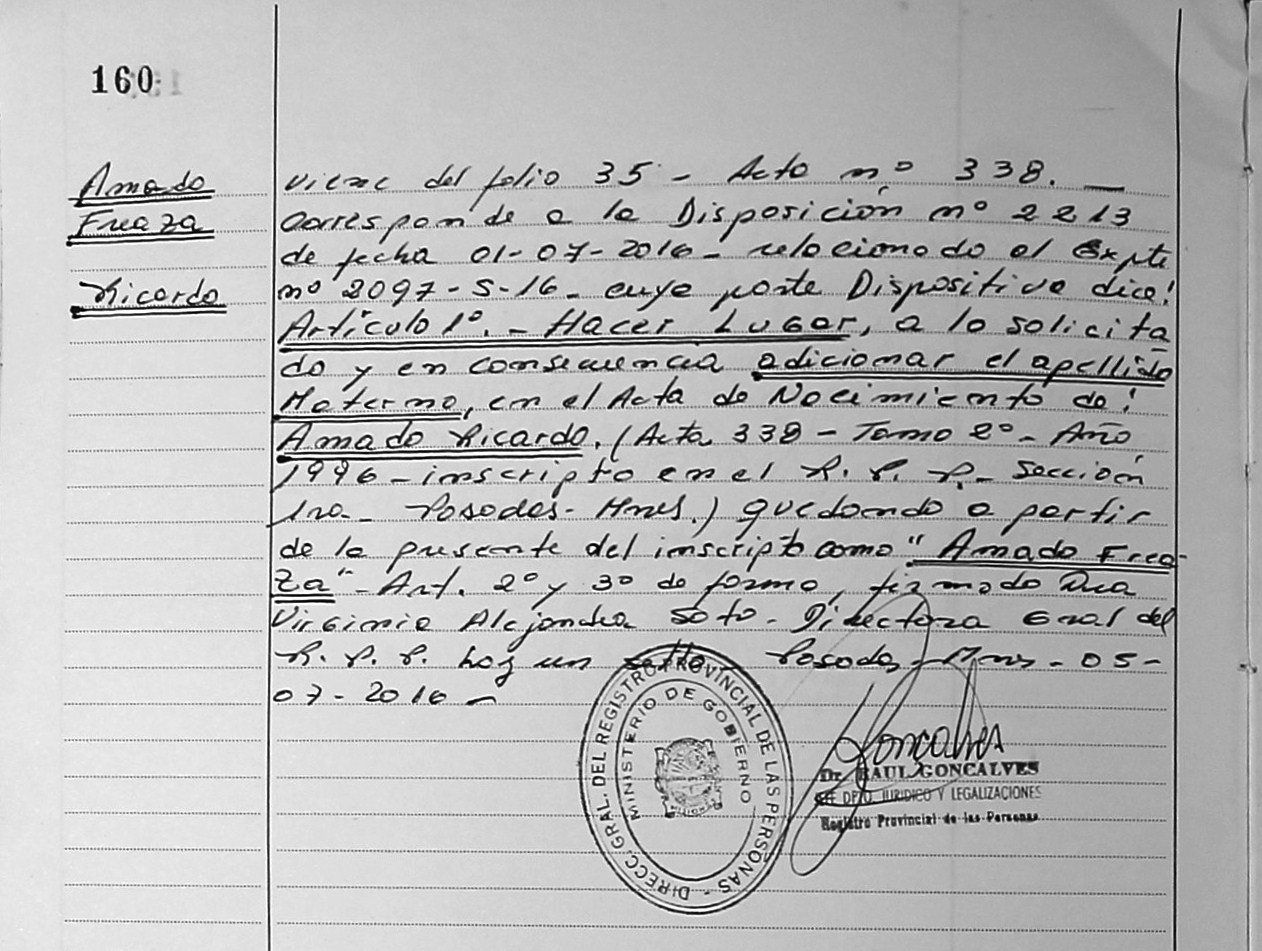 160
Amado
Freaza
Ricardo
viene del folio 35 - Acta nº 338. —
Corresponde a la Disposición nº 2213
de fecha 01-07-2016 - relacionado al Expte
nº 2097-S-16 - cuya parte Dispositiva dice:
Artículo 1º. - Hacer Lugar, a lo solicita
do y en consecuencia adicionar el apellido
Materno, en el Acta de Nacimiento de:
Amado Ricardo. (Acta 338 - Tomo 2º - Año
1996 - inscripto en el R. P. P. - Sección
1ra - Posadas - Mnes.) quedando a partir
de la presente del inscripto como "Amado Frea-
za" - Art. 2º y 3º de forma, firmado Dra
Virginia Alejandra Soto - Directora Gral del
R. P. P. hoy un sello - Posadas - Mnes - 05-
07-2016 -
DIRECC. GRAL. DEL REGISTRO PROVINCIAL DE LAS PERSONAS -
MINISTERIO DE GOBIERNO
MISIONES
Goncalves
Dr. RAUL GONCALVES
JEFE DPTO. JURIDICO Y LEGALIZACIONES
Registro Provincial de las Personas